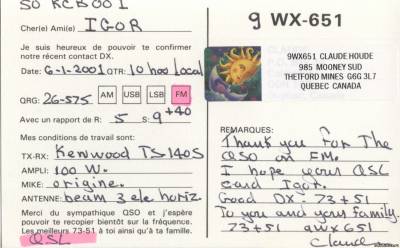 50 RCB001
Cher(e) Ami(e) IGOR
9 WX-651
Je suis heureux de pouvoir te confirmer
notre récent contact DX.
Date: 6-1-2001 QTR: 10 hoo local
QRG: 26-575 AM USB LSB FM
Avec un rapport de R: 5 S: 9+40
Mes conditions de travail sont:
TX-RX: Kenwood TS140S
AMPLI: 100 W.
MIKE: origine.
ANTENNE: beam 3 ele horiz
Merci du sympathique QSO et j'espère
pouvoir te recopier bientôt sur la fréquence.
Les meilleurs 73-51 à toi ainsi qu'à ta famille.
QSL
9WX651 CLAUDE HOUDE
985 MOONEY SUD
THETFORD MINES G6G 3L7
QUEBEC CANADA
REMARQUES:
Thank you For The
QSO on FM.
I hope your QSL
card Igor.
Good DX. 73+51
To you and your family
73+51 9wx651
Claude